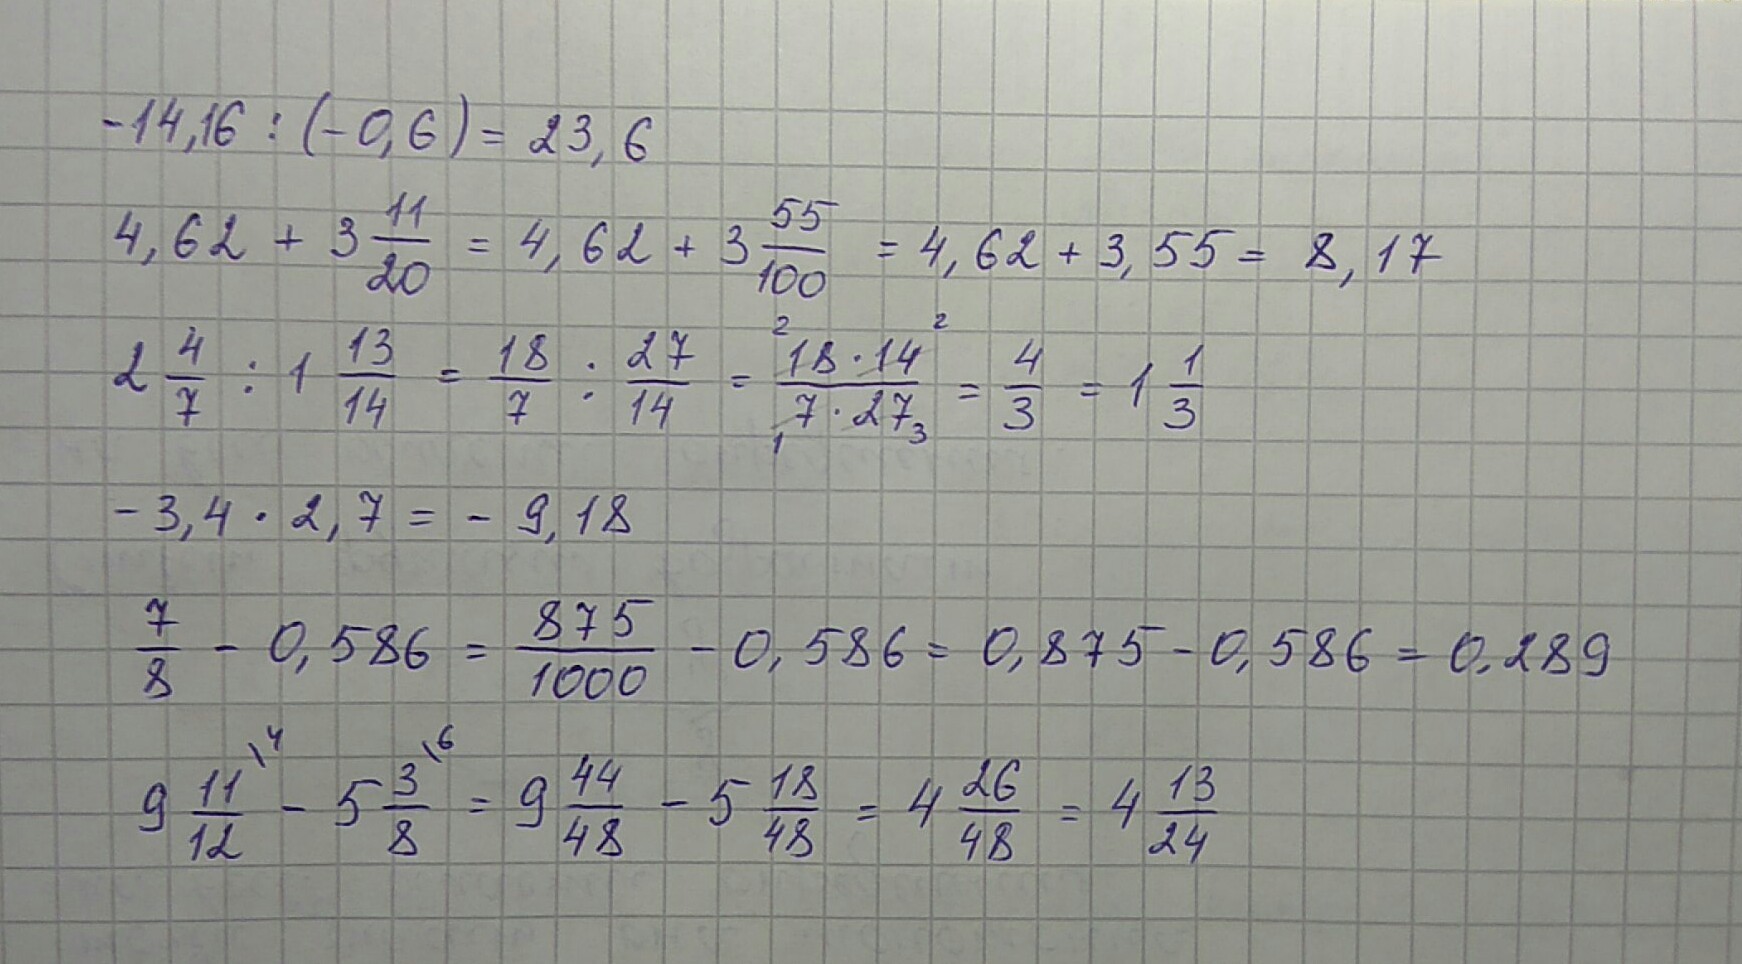 -14,16 : (-0,6) = 23,6
4,62 + 3 11/20 = 4,62 + 3 55/100 = 4,62 + 3,55 = 8,17
2 4/7 : 1 13/14 = 18/7 : 27/14 = ²18·14²/₁7·27₃ = 4/3 = 1 1/3
-3,4 · 2,7 = -9,18
7/8 - 0,586 = 875/1000 - 0,586 = 0,875 - 0,586 = 0.289
9 11/12 \4 - 5 3/8 \6 = 9 44/48 - 5 18/48 = 4 26/48 = 4 13/24